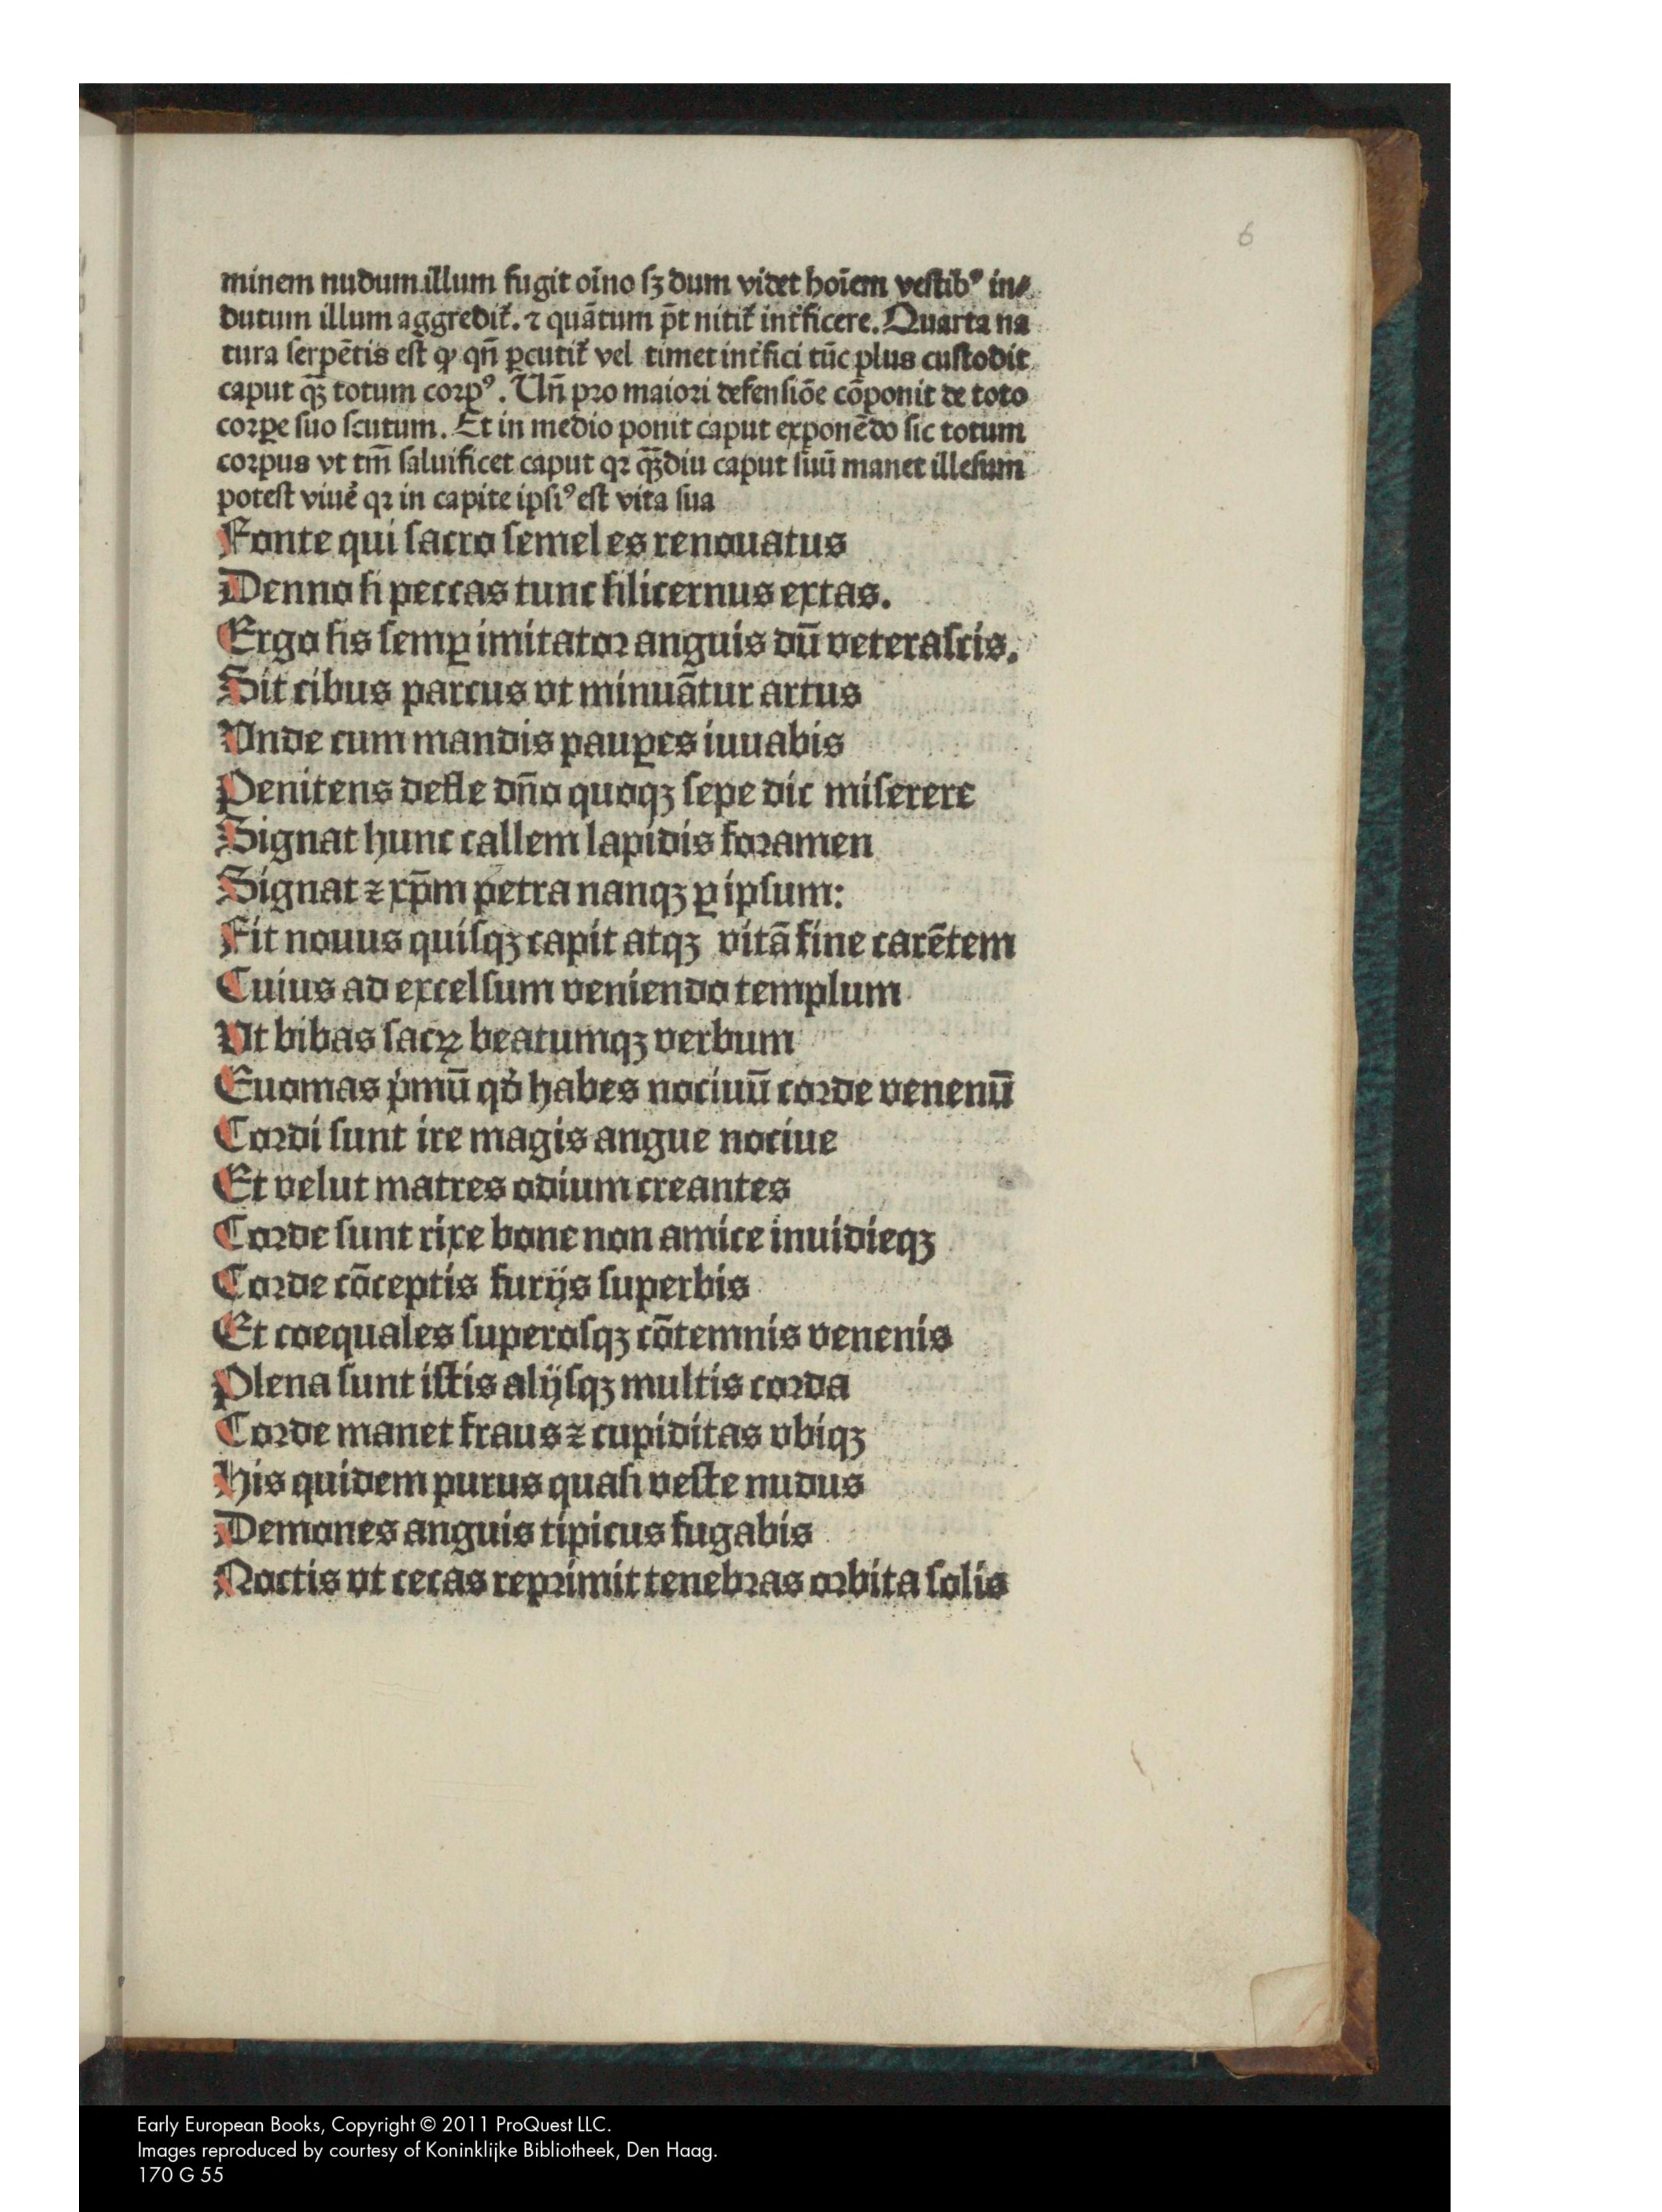 6
minem nudum illum fugit oīno ſꝫ dum videt hoīem veſtibꝰ in⸗
dutum illum aggredit᷑. ⁊ quātum p̄t nitit᷑ int᷑ficere. Quarta na
tura ſerpētis eſt ꝙ qn̄ ꝑcutit᷑ vel timet int᷑fici tūc plus cuſtodit
caput qꝫ̄ totum corpꝰ. Un̄ pro maiori defenſiōe cōponit de toto
corꝑe ſuo ſcutum. Et in medio ponit caput exponēdo ſic totum
corpus vt tm̄ ſaluificet caput qꝛ qꝫ̄diu caput ſuū manet illeſum
poteſt viue᷑ qꝛ in capite ipſiꝰ eſt vita ſua
Fonte qui ſacro ſemel es renouatus
Denno ſi peccas tunc ſilicernus extas.
Ergo ſis ſemꝑ imitator anguis dū veteraſcis.
Sit cibus parcus vt minuātur artus
Vnde cum mandis pauꝑes iuuabis
Penitens defle dn̄o quoqꝫ ſepe dic miſerere
Signat hunc callem lapidis foramen
Signat ⁊ xp̄m petra nanqꝫ ꝑ ipſum:
Fit nouus quiſqꝫ capit atqꝫ vitā fine carētem
Cuius ad excelſum veniendo templum
Vt bibas ſacꝝ beatumqꝫ verbum
Euomas pͥmū qd̓ habes nociuū corde venenū
Cordi ſunt ire magis angue nociue
Et velut matres odium creantes
Corde ſunt rixe bone non amice inuidieqꝫ
Corde cōceptis furijs ſuperbis
Et coequales ſuperoſqꝫ cōtemnis venenis
Plena ſunt iſtis alijſqꝫ multis corda
Corde manet fraus ⁊ cupiditas vbiqꝫ
His quidem purus quaſi veſte nudus
Demones anguis tipicus fugabis
Noctis vt cecas reprimit tenebras orbita ſolis
Early European Books, Copyright © 2011 ProQuest LLC.
Images reproduced by courtesy of Koninklijke Bibliotheek, Den Haag.
170 G 55